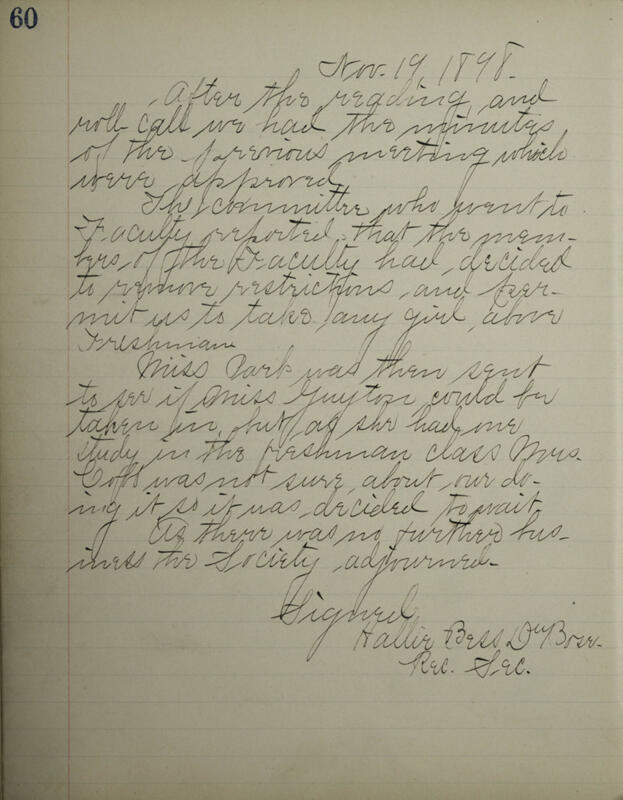 60
Nov. 19, 1898.
After the reading and
roll call we had the minutes
of the previous meeting which
were approved.
The committee who went to
Faculty reported that the mem-
bers of the Faculty had decided
to remove restrictions, and per-
mit us to take any girl above
Freshman
Miss Park was then sent
to see if Miss Guyton could be
taken in, but as she had one
study in the freshman class Mrs.
Cobb was not sure about our do-
ing it so it was decided to wait
As there was no further bus-
iness the Society adjourned-
Signed
Hallie Bess Du Bose-
Rec. Sec.